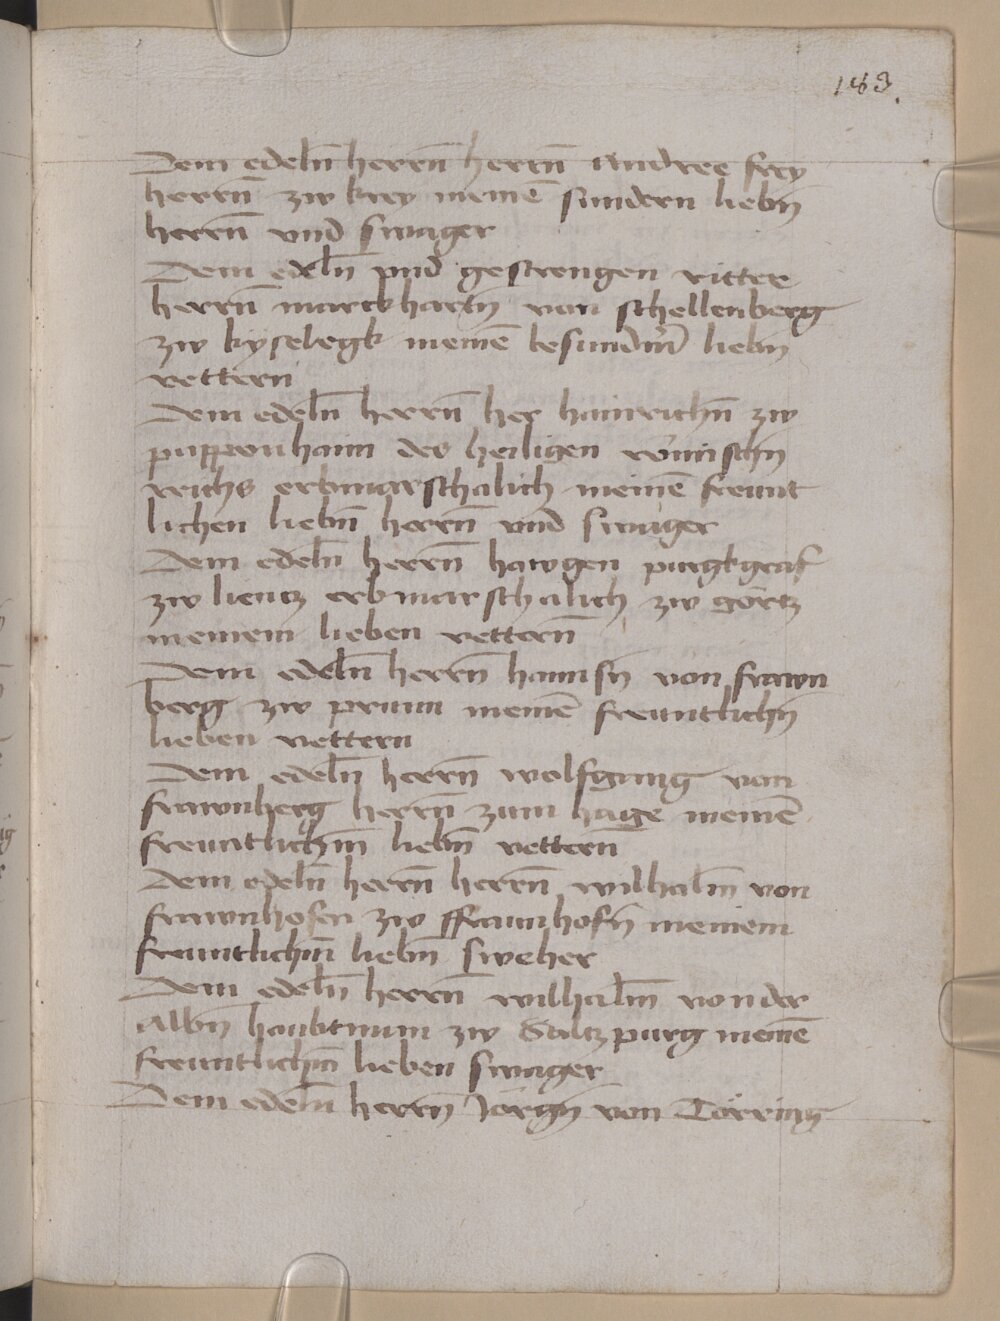 183.
Dem edeln̄ herrn̄ herrn̄ Andree frey
herrn̄ zw krey meinē sundern liebn̄
herrn̄ vnd swager
Dem edeln̄ vnd gestrengen ritter
herrn̄ marckhartn̄ von schellenberg
zw kyselegk meinē besundern̄ liebn̄
vettern
Dem edeln̄ herrn̄ her hainrichn̄ zw
pappenhaim des heiligen römischn̄
reichs erbmarschalich meinē freunt
lichen liebn̄ herrn̄ vnd swager
Dem edeln̄ herrn̄ hawgen purgkgraf
zw lientz erbmarschalich zw görtz
meinem lieben vettern̄
Dem edeln̄ herrn̄ hannsn̄ von frawn
berg zw prunn meinē freuntlichn̄
lieben vettern
Dem edeln̄ herrn̄ wolfgang von
frawnberg herrn̄ zum hage meinē
freuntlichn̄ liebn̄ vettern̄
Dem edeln̄ herrn̄ herrn̄ wilhalm̄ von
frawnhofen zw ffraunhofn̄ meinem
freuntlichn̄ liebn̄ sweher
Dem edeln̄ herrn̄ wilhalm̄ von der
Albn̄ haubtman zw Saltzpurg meinē
freuntlichn̄ lieben swager
Dem edeln̄ herrn̄ Jörgn̄ von Törring